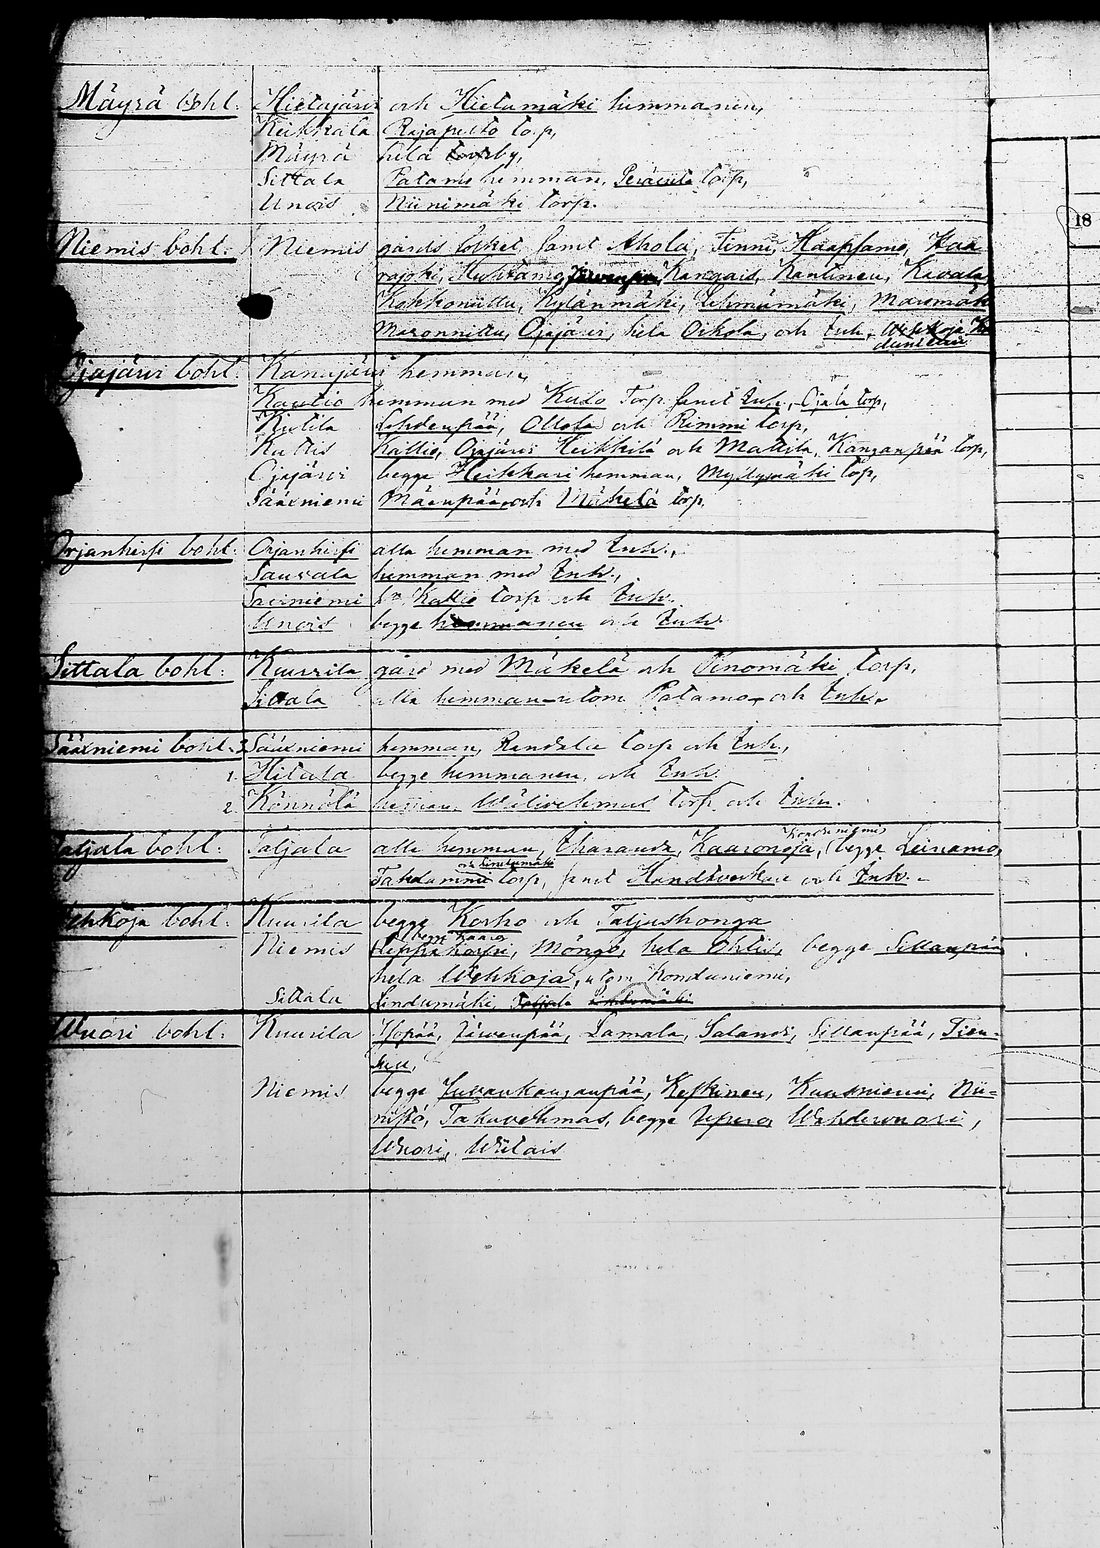 Mäyrä bohl. Hietajärvi och Hietamäki hemmanen,
Keikkala Rajapelto torp,
Mäyrä hela by,
Sittala Patamo hemman, torp,
Unois Niinimäki torp.
Niemis bohl. Niemis gårds samt Ahola, Finni, Haapsamo, Kaa-
rajoki, Huhtamo, Kangais, Kantinen, Kavala,
Kokkoniittu, Kylänmäki, Lehmämäki, Maromäki
Maronnittu, Ojajärvi, hela Oikola, och Inh. Wehkoja Ko
duniemi
Ojajärvi bohl. Kanajärvi hemman,
Kautio hemman med Kuso Torp samt Inh., Ojala torp,
Kistila Lehdenpää, Ollola och Rimmi torp,
Kutis Kallio, Ojajärvi Heikkilä och Mattila, Kanganpää torp,
Ojajärvi begge Heikkari hemman, Myllymäki torp,
Sääxniemi Mäenpää, och Mäkelä torp,
Orjanhirsi bohl. Orjanhirsi alla hemman med Inh.,
Saurala hemman med Inh.,
Saviniemi Kallio torp och Inh.
Unois begge hemmanen och Inh.
Sittala bohl. Kuurila gård med Mäkelä och Pinomäki torp,
Sittala alla hemman utom Patamo och Inh.
Sääxniemi bohl. 3. Sääxniemi hemman, Rendola torp och Inh.,
1. Hitala begge hemmanen, och Inh.
2. Könnölä hemman, torp och Inh.
Taljala bohl. Taljala alla hemman, Kaaronoja, Konduniemi begge Leinamo,
och Lindumäki
Takdammi torp, samt Handtverkare och Inh.
Wehkoja bohl. Kuurila begge Korho och Taljushonga
Niemis begge Kaaro
Leppäkorpi, Möngö, hela Ohlis, begge Sillanpää
hela Wehkoja, utom Konduniemi,
Sittala Lindumäki, Taljala Lindumäki
Wuori bohl. Kuurila Yspää, Järvenpää, Lamala, Salandi, Sillanpää, Tien-
suu,
Niemis begge Juvankanganpää, Keskinen, Kauniemi, Nii-
nistö, Takavehmas, begge Upero, Wahderwuori,
Wuori, Wiitais
18